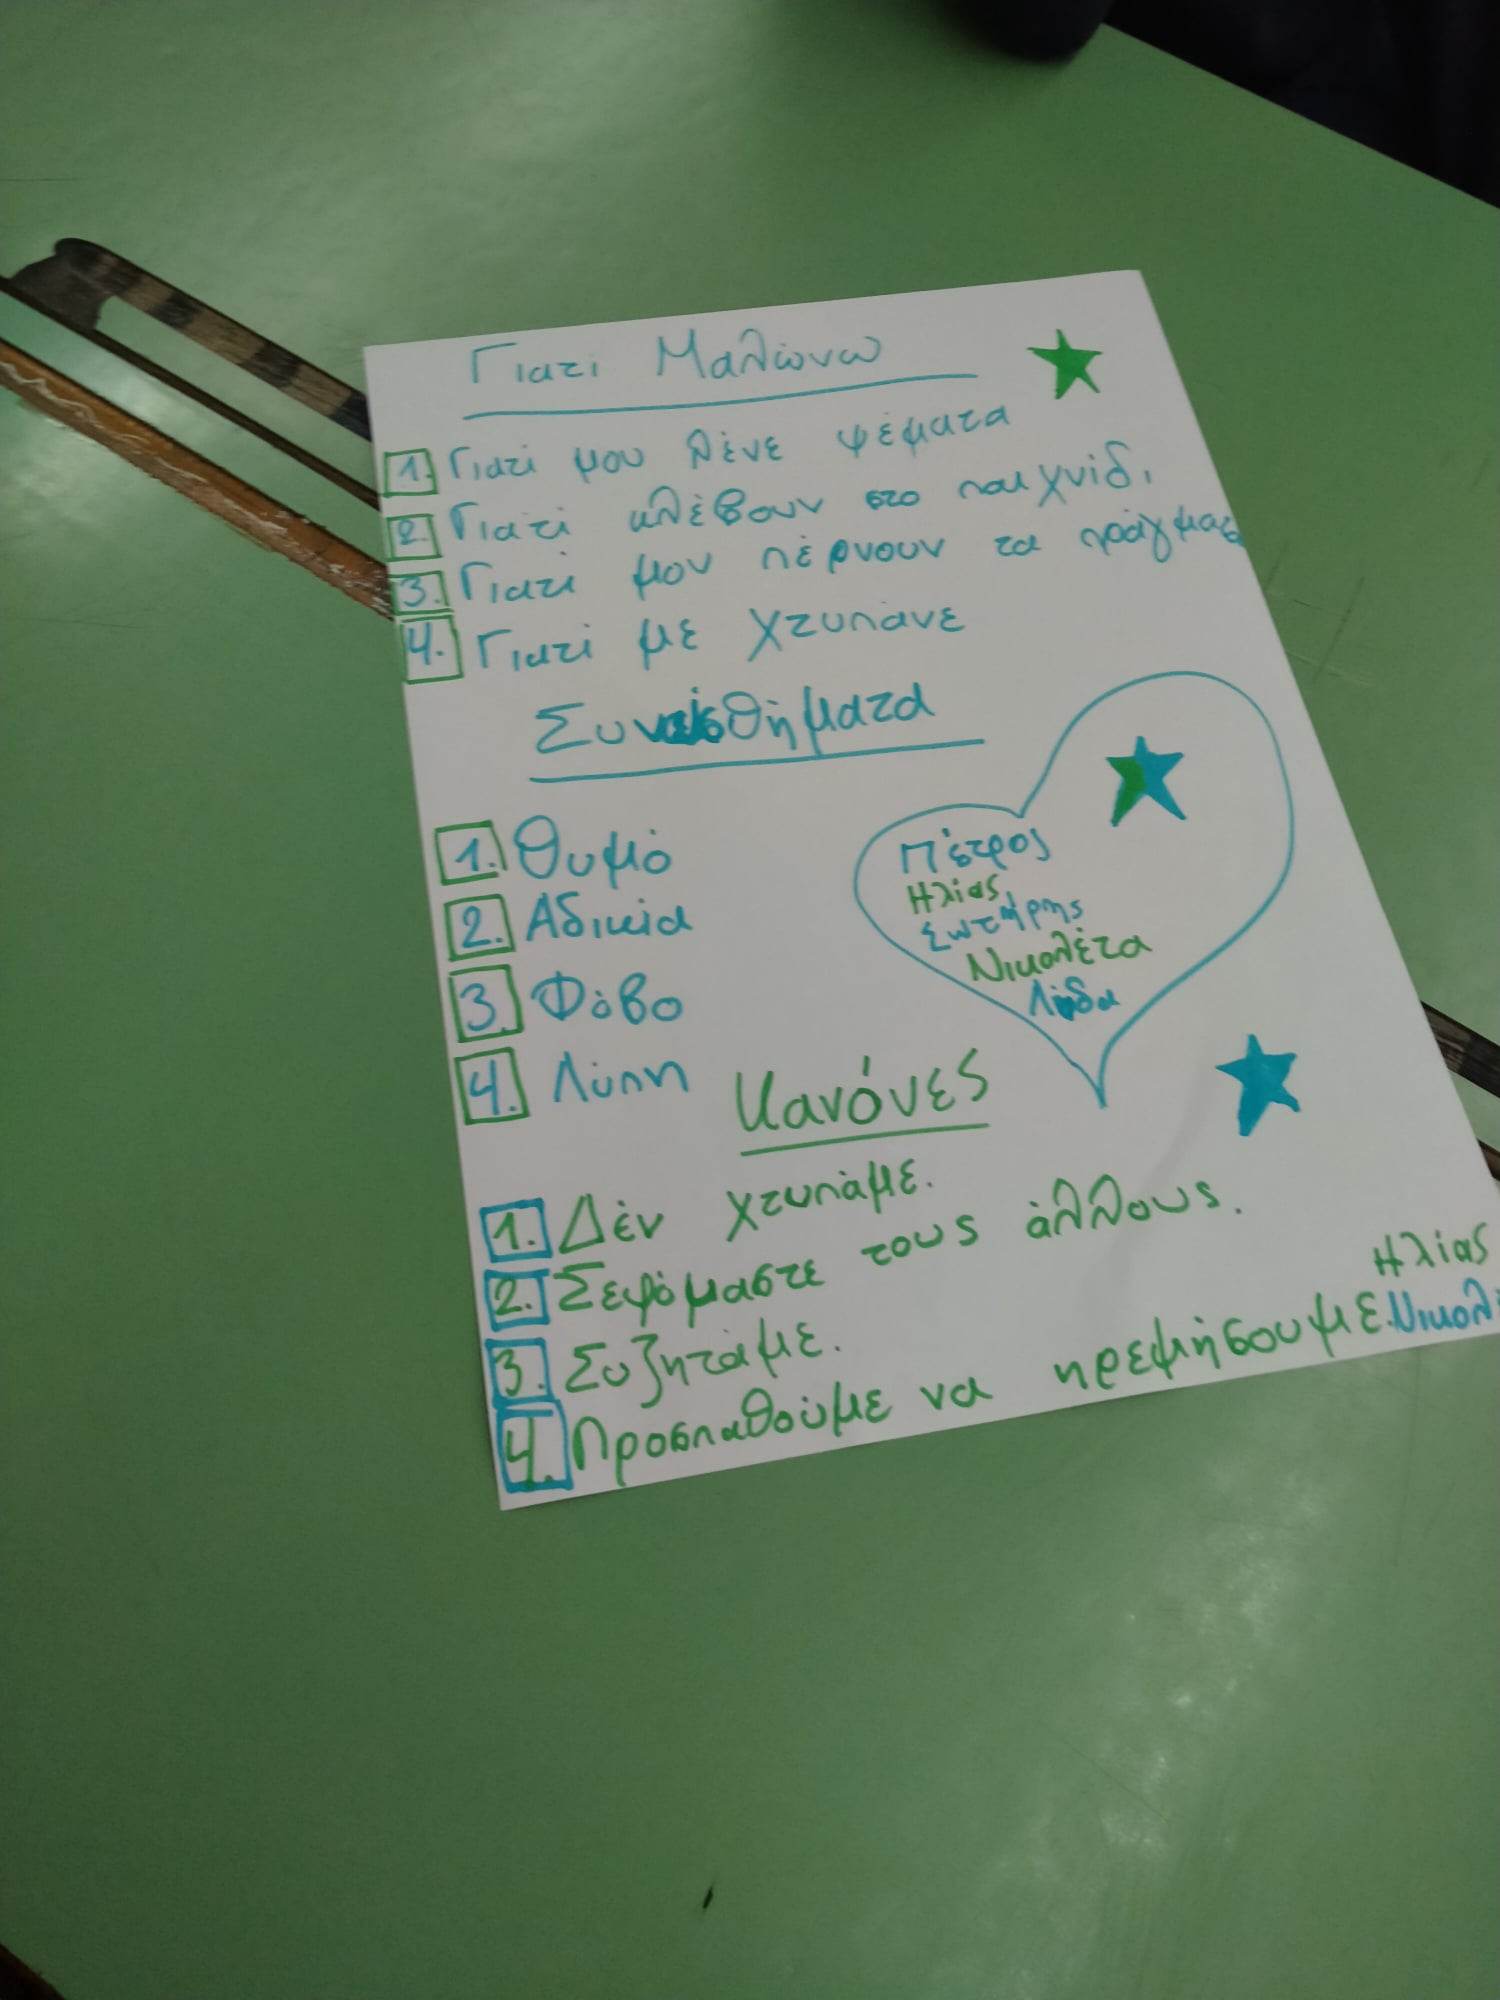 Γιατί Μαλώνω
1. Γιατί μου λένε ψέματα
2. Γιατί κλέβουν στο παιχνίδι
3. Γιατί μου πέρνουν τα πράγματα
4. Γιατί με χτυπάνε
Συναισθήματα
1. Θυμό
2. Αδικία
3. Φόβο
4. Λύπη
Πέτρος
Ηλίας
Σωτήρης
Νικολέτα
Λήδα
Κανόνες
1. Δέν χτυπάμε.
2. Σεφόμαστε τους άλλους.
3. Συζητάμε.
4. Προσπαθούμε να ηρεμήσουμε.
Ηλίας
Νικολ